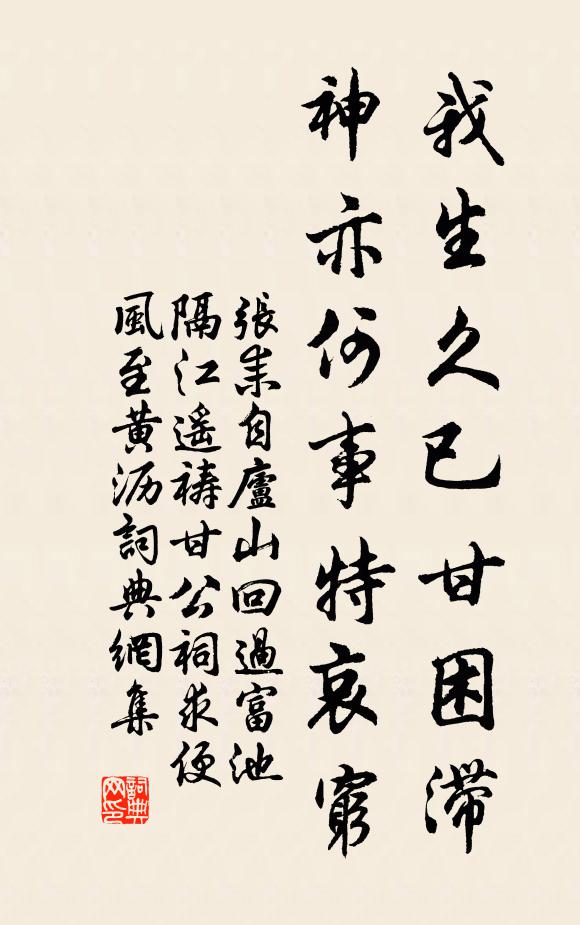 我生久已甘困滯
神亦何事特哀窮
張耒自廬山回過富池
隔江遙禱甘公祠求便
風至黃沥詞典網集
詞典
网印